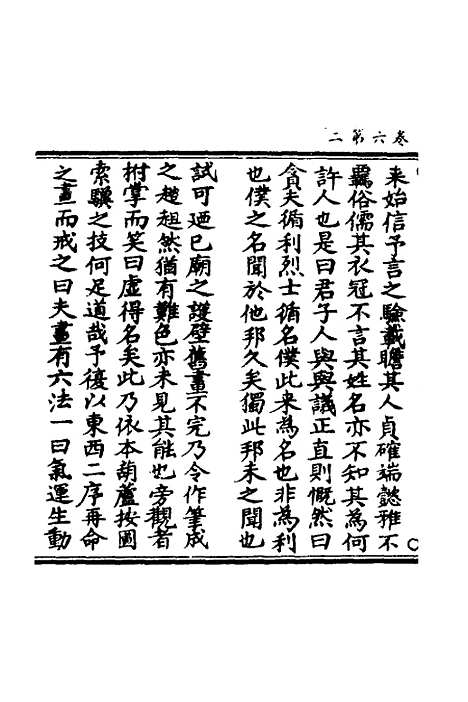 卷六第二
来始信予言之驗載瞻其人貞確端懿雅不
羈俗儒其衣冠不言其姓名亦不知其為何
許人也是曰君子人與與議正直則慨然曰
貪夫循利烈士循名僕此来為名也非為利
也僕之名聞於他邦久矣獨此邦未之聞也
試可廼已廟之護壁舊畫不完乃令作筆成
之趑趄然猶有難色亦未見其能也旁觀者
拊掌而笑曰虛得名矣此乃依本葫蘆按圖
索驥之技何足道哉予復以東西二序再命
之畫而戒之曰夫畫有六法一曰氣運生動